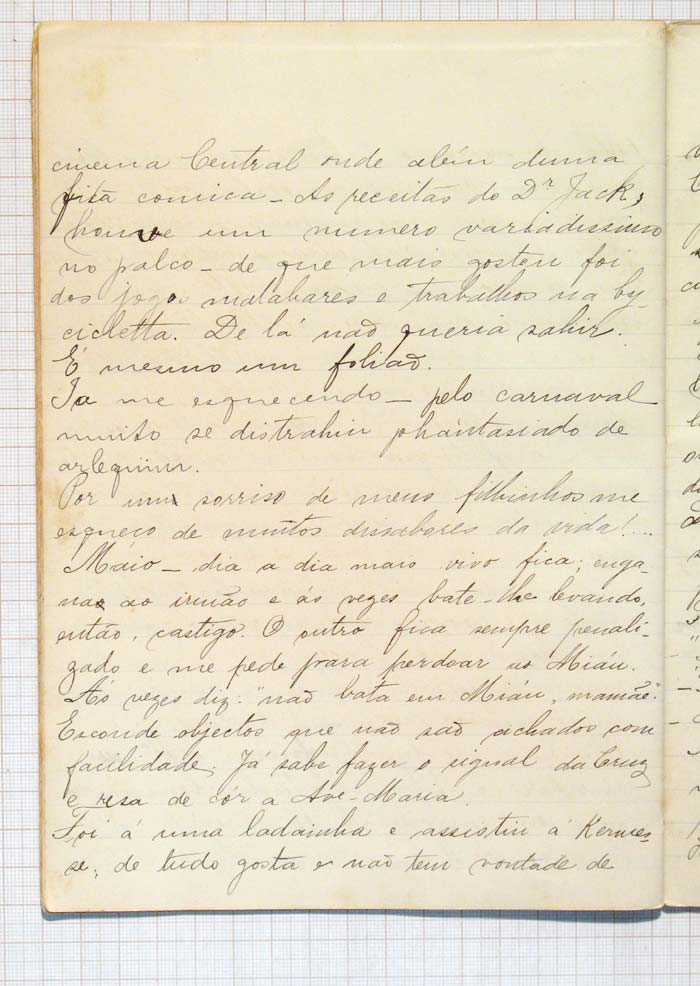 cinema Central onde além duma
fita comica - As receitas do Dr. Jack,
houve um numero variadissimo
no palco - de que mais gostou foi
dos jogos malabares e trabalhos na by-
cicletta. De lá naõ queria sahir.
É mesmo um foliaõ.
Ia me esquecendo - pelo carnaval
muito se distrahiu phantasiado de
arlequim.
Por um sorriso de meus filhinhos me
esqueço de muitos dissabores da vida!...
Maio - dia a dia mais vivo fica; enga-
na ao irmão e ás vezes bate-lhe levando,
então, castigo. O outro fica sempre penali-
zado e me pede para perdoar ao Miáu.
Ás vezes diz: "naõ bata em Miáu, mamãe."
Esconde objectos que naõ saõ achados com
facilidade. Já sabe fazer o signal da Cruz
e resa de cór a Ave-Maria.
Foi á uma ladainha e assistiu á Kermes-
se; de tudo gosta e naõ tem vontade de